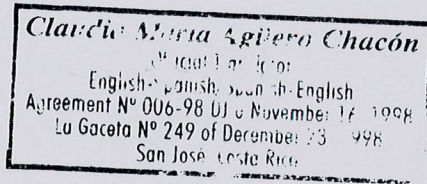 Claudia María Agüero Chacón
Official
English-Spanish, Spanish-English
Agreement Nº 006-98 DJ November 1998
La Gaceta Nº 249 of December 23 998
San José, Costa Rica